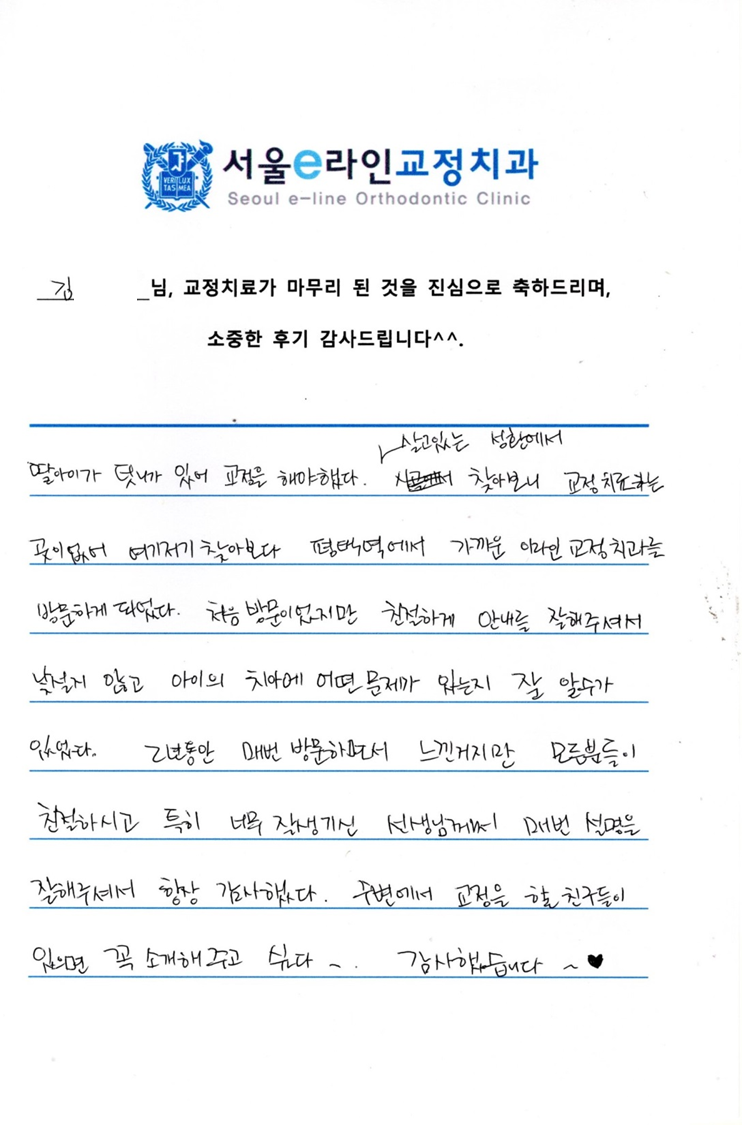 VERI LUX TAS MEA
서울e라인교정치과
Seoul e-line Orthodontic Clinic
김 님, 교정치료가 마무리 된 것을 진심으로 축하드리며,
소중한 후기 감사드립니다^^.
살고있는 성환에서
딸아이가 덧니가 있어 교정을 해야했다. 찾아보니 교정치료하는
곳이없어 여기저기 찾아보다 평택역에서 가까운 이라인교정치과를
방문하게 되었다. 처음 방문이었지만 친절하게 안내를 잘해주셔서
낯설지 않고 아이의 치아에 어떤 문제가 있는지 잘 알수가
있었다. 2년동안 매번 방문하면서 느낀거지만 모든분들이
친절하시고 특히 너무 잘생기신 선생님께서 매번 설명을
잘해주셔서 항상 감사했다. 주변에서 교정을 할 친구들이
있으면 꼭 소개해주고 싶다~. 감사했습니다~♥